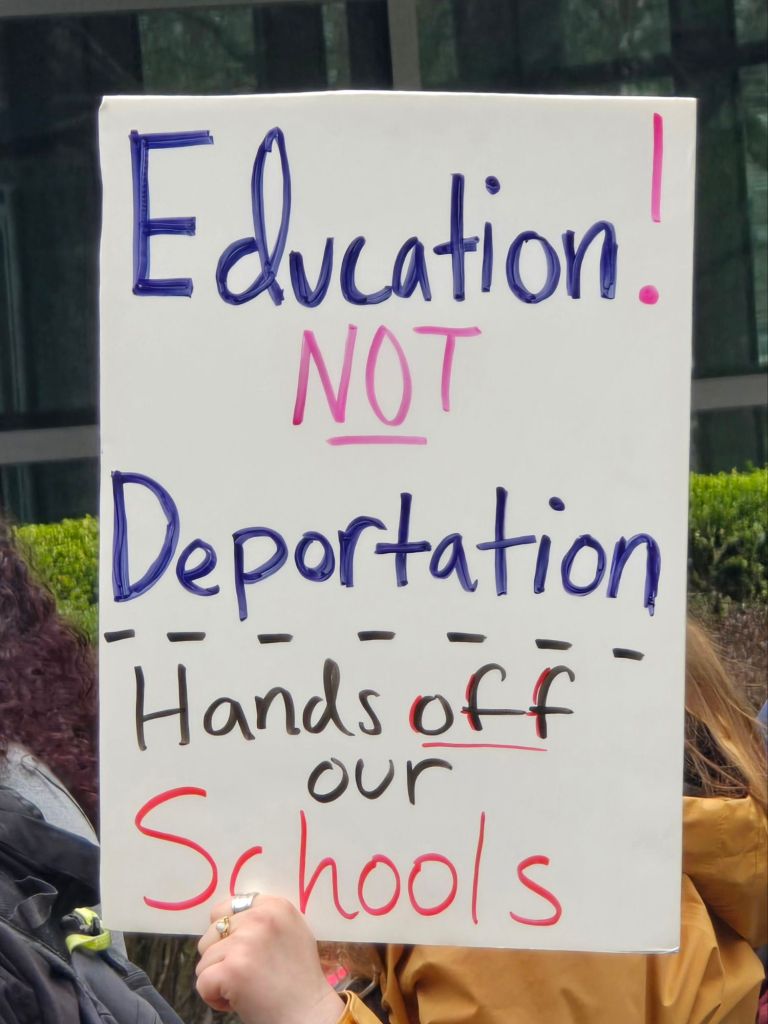 Education!
NOT
Deportation
- - - - - - -
Hands off
our
Schools